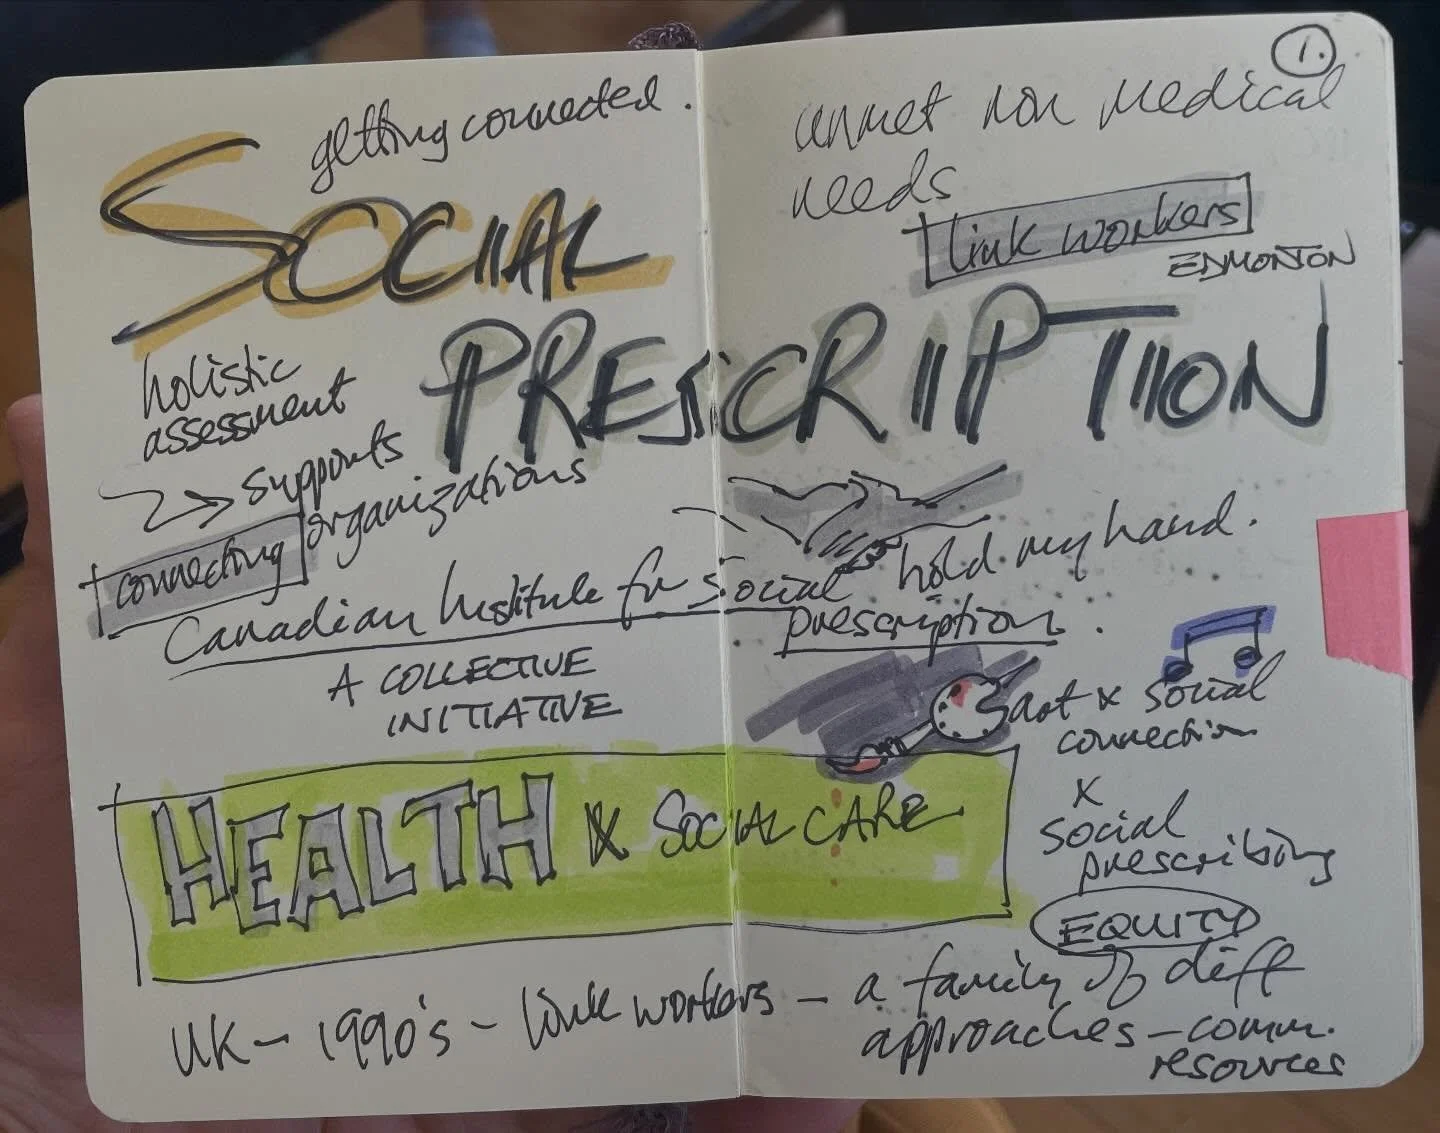 1.
getting connected.
unmet non medical
needs
link workers
EDMONTON
SOCIAL
PRESCRIPTION
holistic
assessment
supports
organizations
connecting
hold my hand.
Canadian Institute for Social
prescription.
A COLLECTIVE
INITIATIVE
art x social
connection
x
social
prescribing
HEALTH x SOCIAL CARE
EQUITY
UK - 1990's - link workers - a family of diff
approaches - comm.
resources